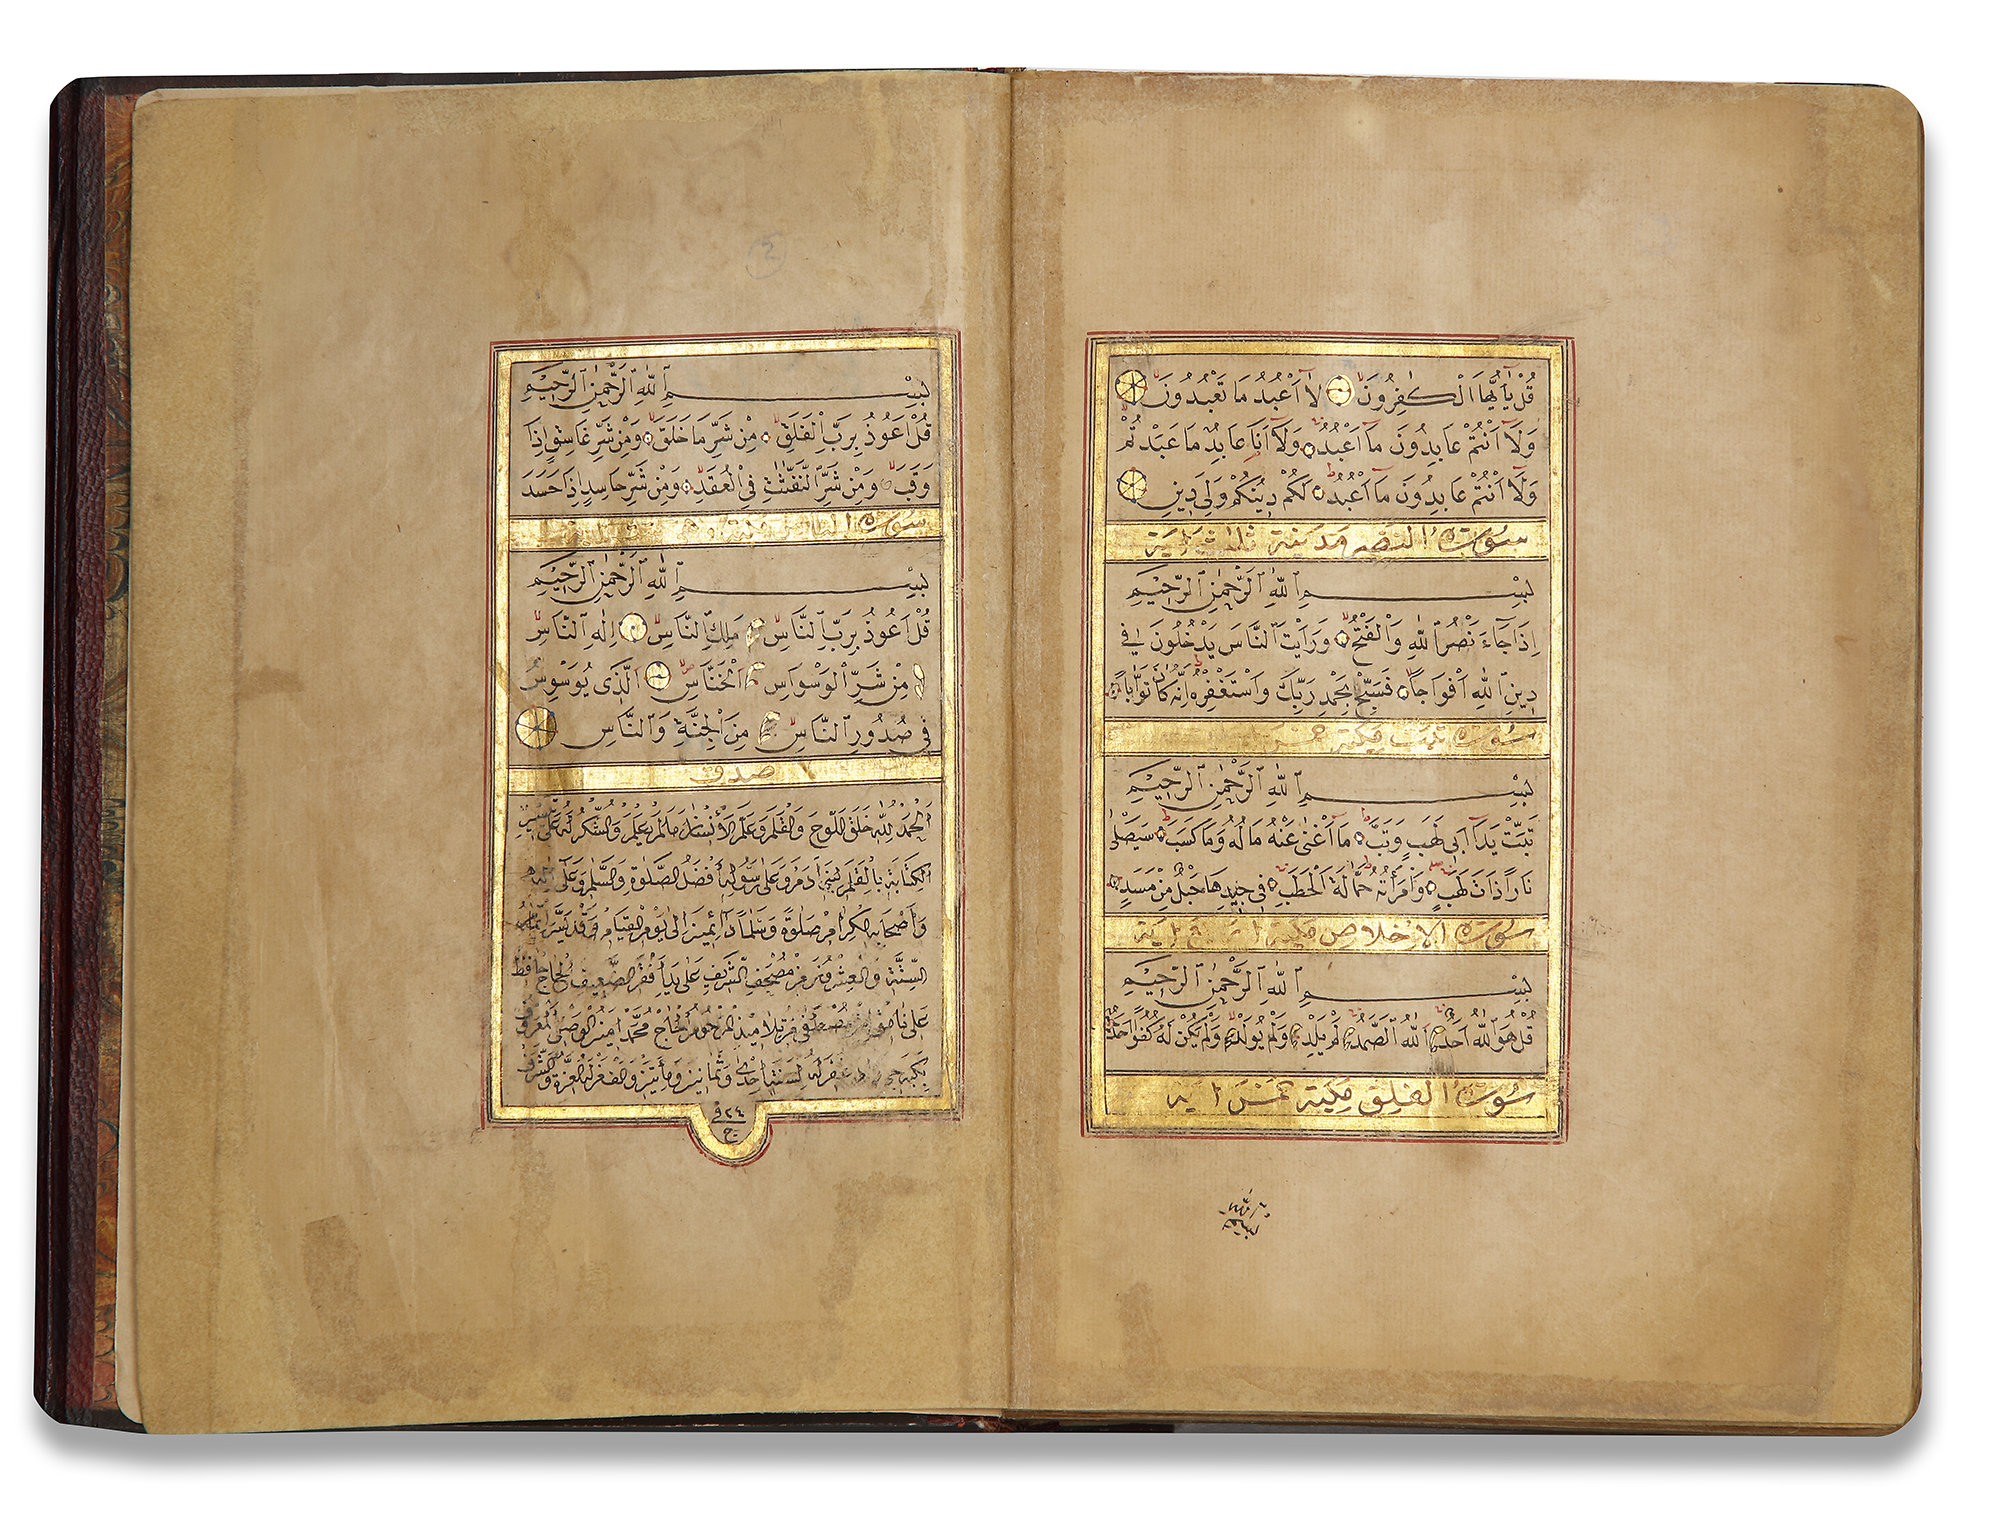 قُلْ يَا أَيُّهَا الْكَافِرُونَ لَا أَعْبُدُ مَا تَعْبُدُونَ
وَلَا أَنْتُمْ عَابِدُونَ مَا أَعْبُدُ وَلَا أَنَا عَابِدٌ مَا عَبَدْتُمْ
وَلَا أَنْتُمْ عَابِدُونَ مَا أَعْبُدُ لَكُمْ دِينُكُمْ وَلِيَ دِينِ
سورة النصر مدنية ثلاث آية
بِسْمِ اللّٰهِ الرَّحْمٰنِ الرَّحِيمِ
اِذَا جَاءَ نَصْرُ اللّٰهِ وَالْفَتْحُ وَرَاَيْتَ النَّاسَ يَدْخُلُونَ فِي
دِينِ اللّٰهِ اَفْوَاجًا فَسَبِّحْ بِحَمْدِ رَبِّكَ وَاسْتَغْفِرْهُ اِنَّهُ كَانَ تَوَّابًا
سورة تبت مكية خمس
بِسْمِ اللّٰهِ الرَّحْمٰنِ الرَّحِيمِ
تَبَّتْ يَدَا اَبِي لَهَبٍ وَتَبَّ مَا اَغْنٰى عَنْهُ مَالُهُ وَمَا كَسَبَ سَيَصْلٰى
نَارًا ذَاتَ لَهَبٍ وَامْرَاَتُهُ حَمَّالَةَ الْحَطَبِ فِي جِيدِهَا حَبْلٌ مِنْ مَسَدٍ
سورة الاخلاص مكية اربع آية
بِسْمِ اللّٰهِ الرَّحْمٰنِ الرَّحِيمِ
قُلْ هُوَ اللّٰهُ اَحَدٌ اَللّٰهُ الصَّمَدُ لَمْ يَلِدْ وَلَمْ يُولَدْ وَلَمْ يَكُنْ لَهُ كُفُوًا اَحَدٌ
سورة الفلق مكية خمس آية
بِسْمِ اللّٰهِ الرَّحْمٰنِ الرَّحِيمِ
قُلْ اَعُوذُ بِرَبِّ الْفَلَقِ مِنْ شَرِّ مَا خَلَقَ وَمِنْ شَرِّ غَاسِقٍ اِذَا
وَقَبَ وَمِنْ شَرِّ النَّفَّاثَاتِ فِي الْعُقَدِ وَمِنْ شَرِّ حَاسِدٍ اِذَا حَسَدَ
سورة الناس
بِسْمِ اللّٰهِ الرَّحْمٰنِ الرَّحِيمِ
قُلْ اَعُوذُ بِرَبِّ النَّاسِ مَلِكِ النَّاسِ اِلٰهِ النَّاسِ
مِنْ شَرِّ الْوَسْوَاسِ الْخَنَّاسِ اَلَّذِي يُوَسْوِسُ
فِي صُدُورِ النَّاسِ مِنَ الْجِنَّةِ وَالنَّاسِ
صدق
اَلْحَمْدُ لِلّٰهِ خَلَقَ اللَّوْحَ وَالْقَلَمَ وَعَلَّمَ الْأِنْسَانَ مَا لَمْ يَعْلَمْ وَالشُّكْرُ لَهُ عَلَى
الْكِتَابَةِ بِالْقَلَمِ لِبَنِي آدَمَ وَعَلٰى رَسُولِهِ أَفْضَلُ الصَّلٰوةِ وَالسَّلَامِ وَعَلٰى آلِهِ
وَأَصْحَابِهِ الْكِرَامِ صَلٰوةً وَسَلَامًا دَائِمَيْنِ اِلٰى يَوْمِ الْقِيَامِ وَقَدْ يَسَّرَ
السِّتَّةَ وَالْعِشْرُونَ مِنْ مُصْحَفِ الشَّرِيفِ عَلٰى يَدِ أَفْقَرِ الضَّعِيفِ الْحَاجِّ حَافِظْ
عَلِي مِنْ تَلَامِيذِ الْمَرْحُومِ الْحَاجِّ مُحَمَّدْ اَمِينْ الْوَصْفِي الْمَعْرُوفْ
غَفَرَ لَهُ لِسَنَةِ اِحْدٰى وَثَمَانِينَ وَمِأَتَيْنِ وَأَلْفْ لَهُ الْعِزَّةُ وَالشَّرَفُ